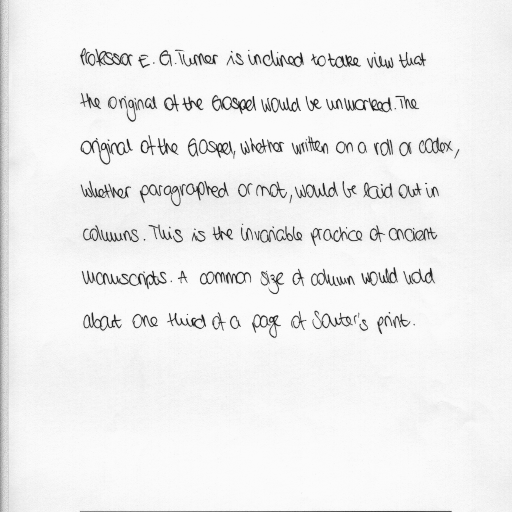 Professor E. G. Turner is inclined to take view that
the original of the Gospel would be unmarked. The
original of the Gospel, whether written on a roll or codex,
whether paragraphed or not, would be laid out in
columns. This is the invariable practice of ancient
manuscripts. A common size of column would hold
about one third of a page of Souter's print.